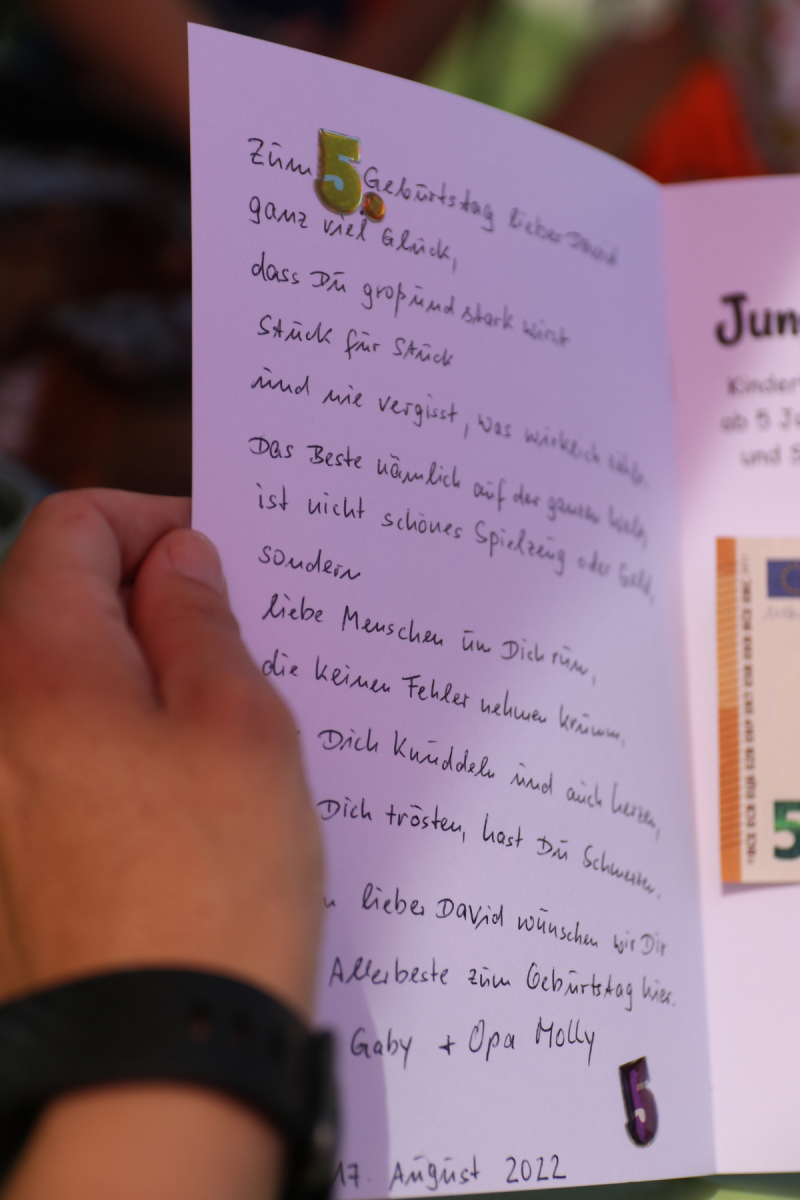 Zum 5. Geburtstag lieber David
ganz viel Glück,
dass Du groß und stark wirst
Stück für Stück
und nie vergisst, was wirklich zählt.
Das Beste nämlich auf der ganzen Welt,
ist nicht schönes Spielzeug oder Geld,
sondern
liebe Menschen um Dich rum,
die keinen Fehler nehmen krumm,
Dich Knuddeln und auch herzen,
Dich trösten, hast Du Schmerzen.
lieber David wünschen wir Dir
Allerbeste zum Geburtstag hier.
Gaby + Opa Molly
5
17. August 2022
Jun
Kinder
ab 5 Ja
und S
5